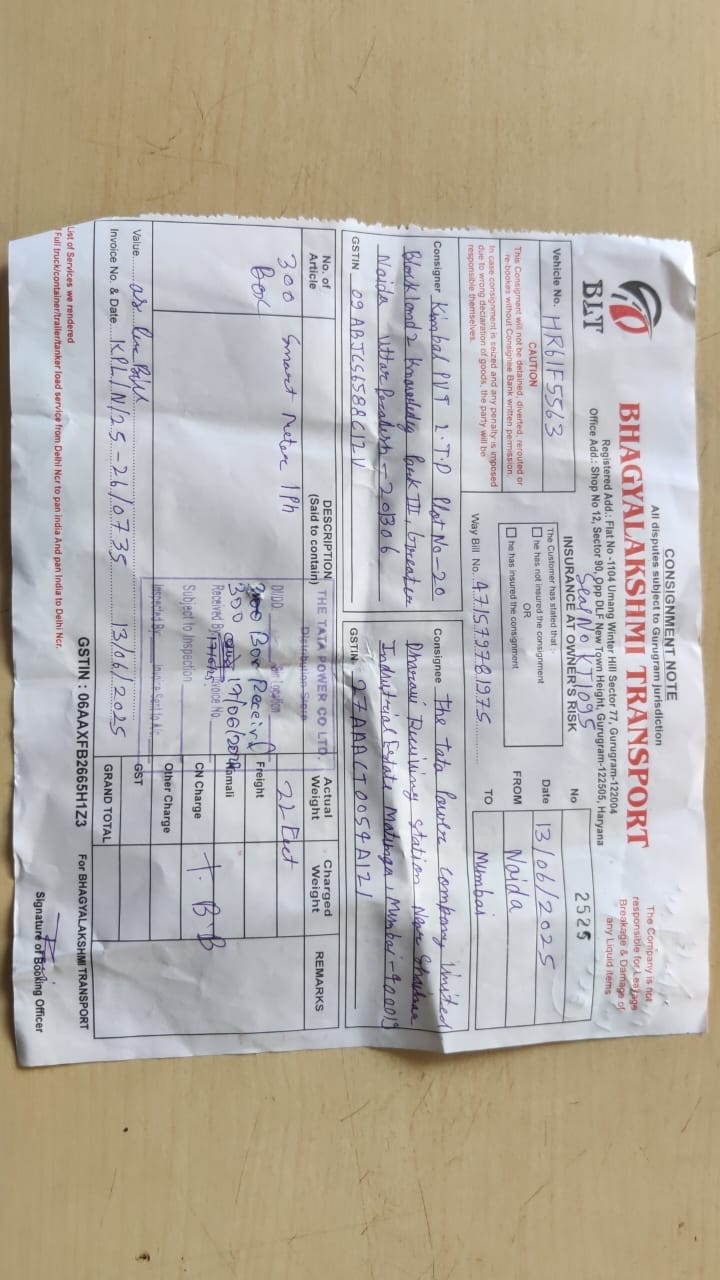 CONSIGNMENT NOTE
All disputes subject to Gurugram Jurisdiction
The Company is not
responsible for Leakage
Breakage & Damage of
any Liquid items
BLT
BHAGYALAKSHMI TRANSPORT
Registered Add.: Flat No -1104 Umang Winter Hill Sector 77, Gurugram-122004
Office Add.: Shop No 12, Sector 90, Opp DLF New Town Height, Gurugram-122505, Haryana
Seal No KJ1095
Vehicle No. HR61F5563
INSURANCE AT OWNER'S RISK
No 2525
CAUTION
This Consignment will not be detained, diverted, rerouted or
re-bookes without Consignee Bank written permission.
In case consignment is seized and any penalty is imposed
due to wrong declaration of goods, the party will be
responsible themselves.
The Customer has stated that :-
he has not insured the consignment
OR
he has insured the consignment
Way Bill No. 471579781975
Date 13/06/2025
FROM Noida
TO Mumbai
Consigner Kimbal PVT L.T.D Plot No-20
Block land 2 knowledge Park III, Greater
Noida Uttar Pradesh - 201306
GSTIN
Consignee The Tata Power Company Limited
Dharavi Receiving Station Near Shalimar
Industrial Estate Matunga, Mumbai-400019
GSTIN 27AAACT0054A1Z1
No. of
Article
DESCRIPTION
(Said to contain)
Actual
Weight
Charged
Weight
REMARKS
300
Box
Smart Meter 1Ph
22 Feet
THE TATA POWER CO LTD.
300 Box Received
300 19/06/2025
Received By
Subject to Inspection
Freight
Hamali
CN Charge
Other Charge
GST
GRAND TOTAL
T.B.B
Value as per Bill
Invoice No. & Date KPL/N/25-26/0735 13/06/2025
GSTIN : 06AAXFB2665H1Z3
For BHAGYALAKSHMI TRANSPORT
List of Services we rendered
Full truck/container/trailer/tanker load service from Delhi Ncr to pan india And pan India to Delhi Ncr.
Signature of Booking Officer